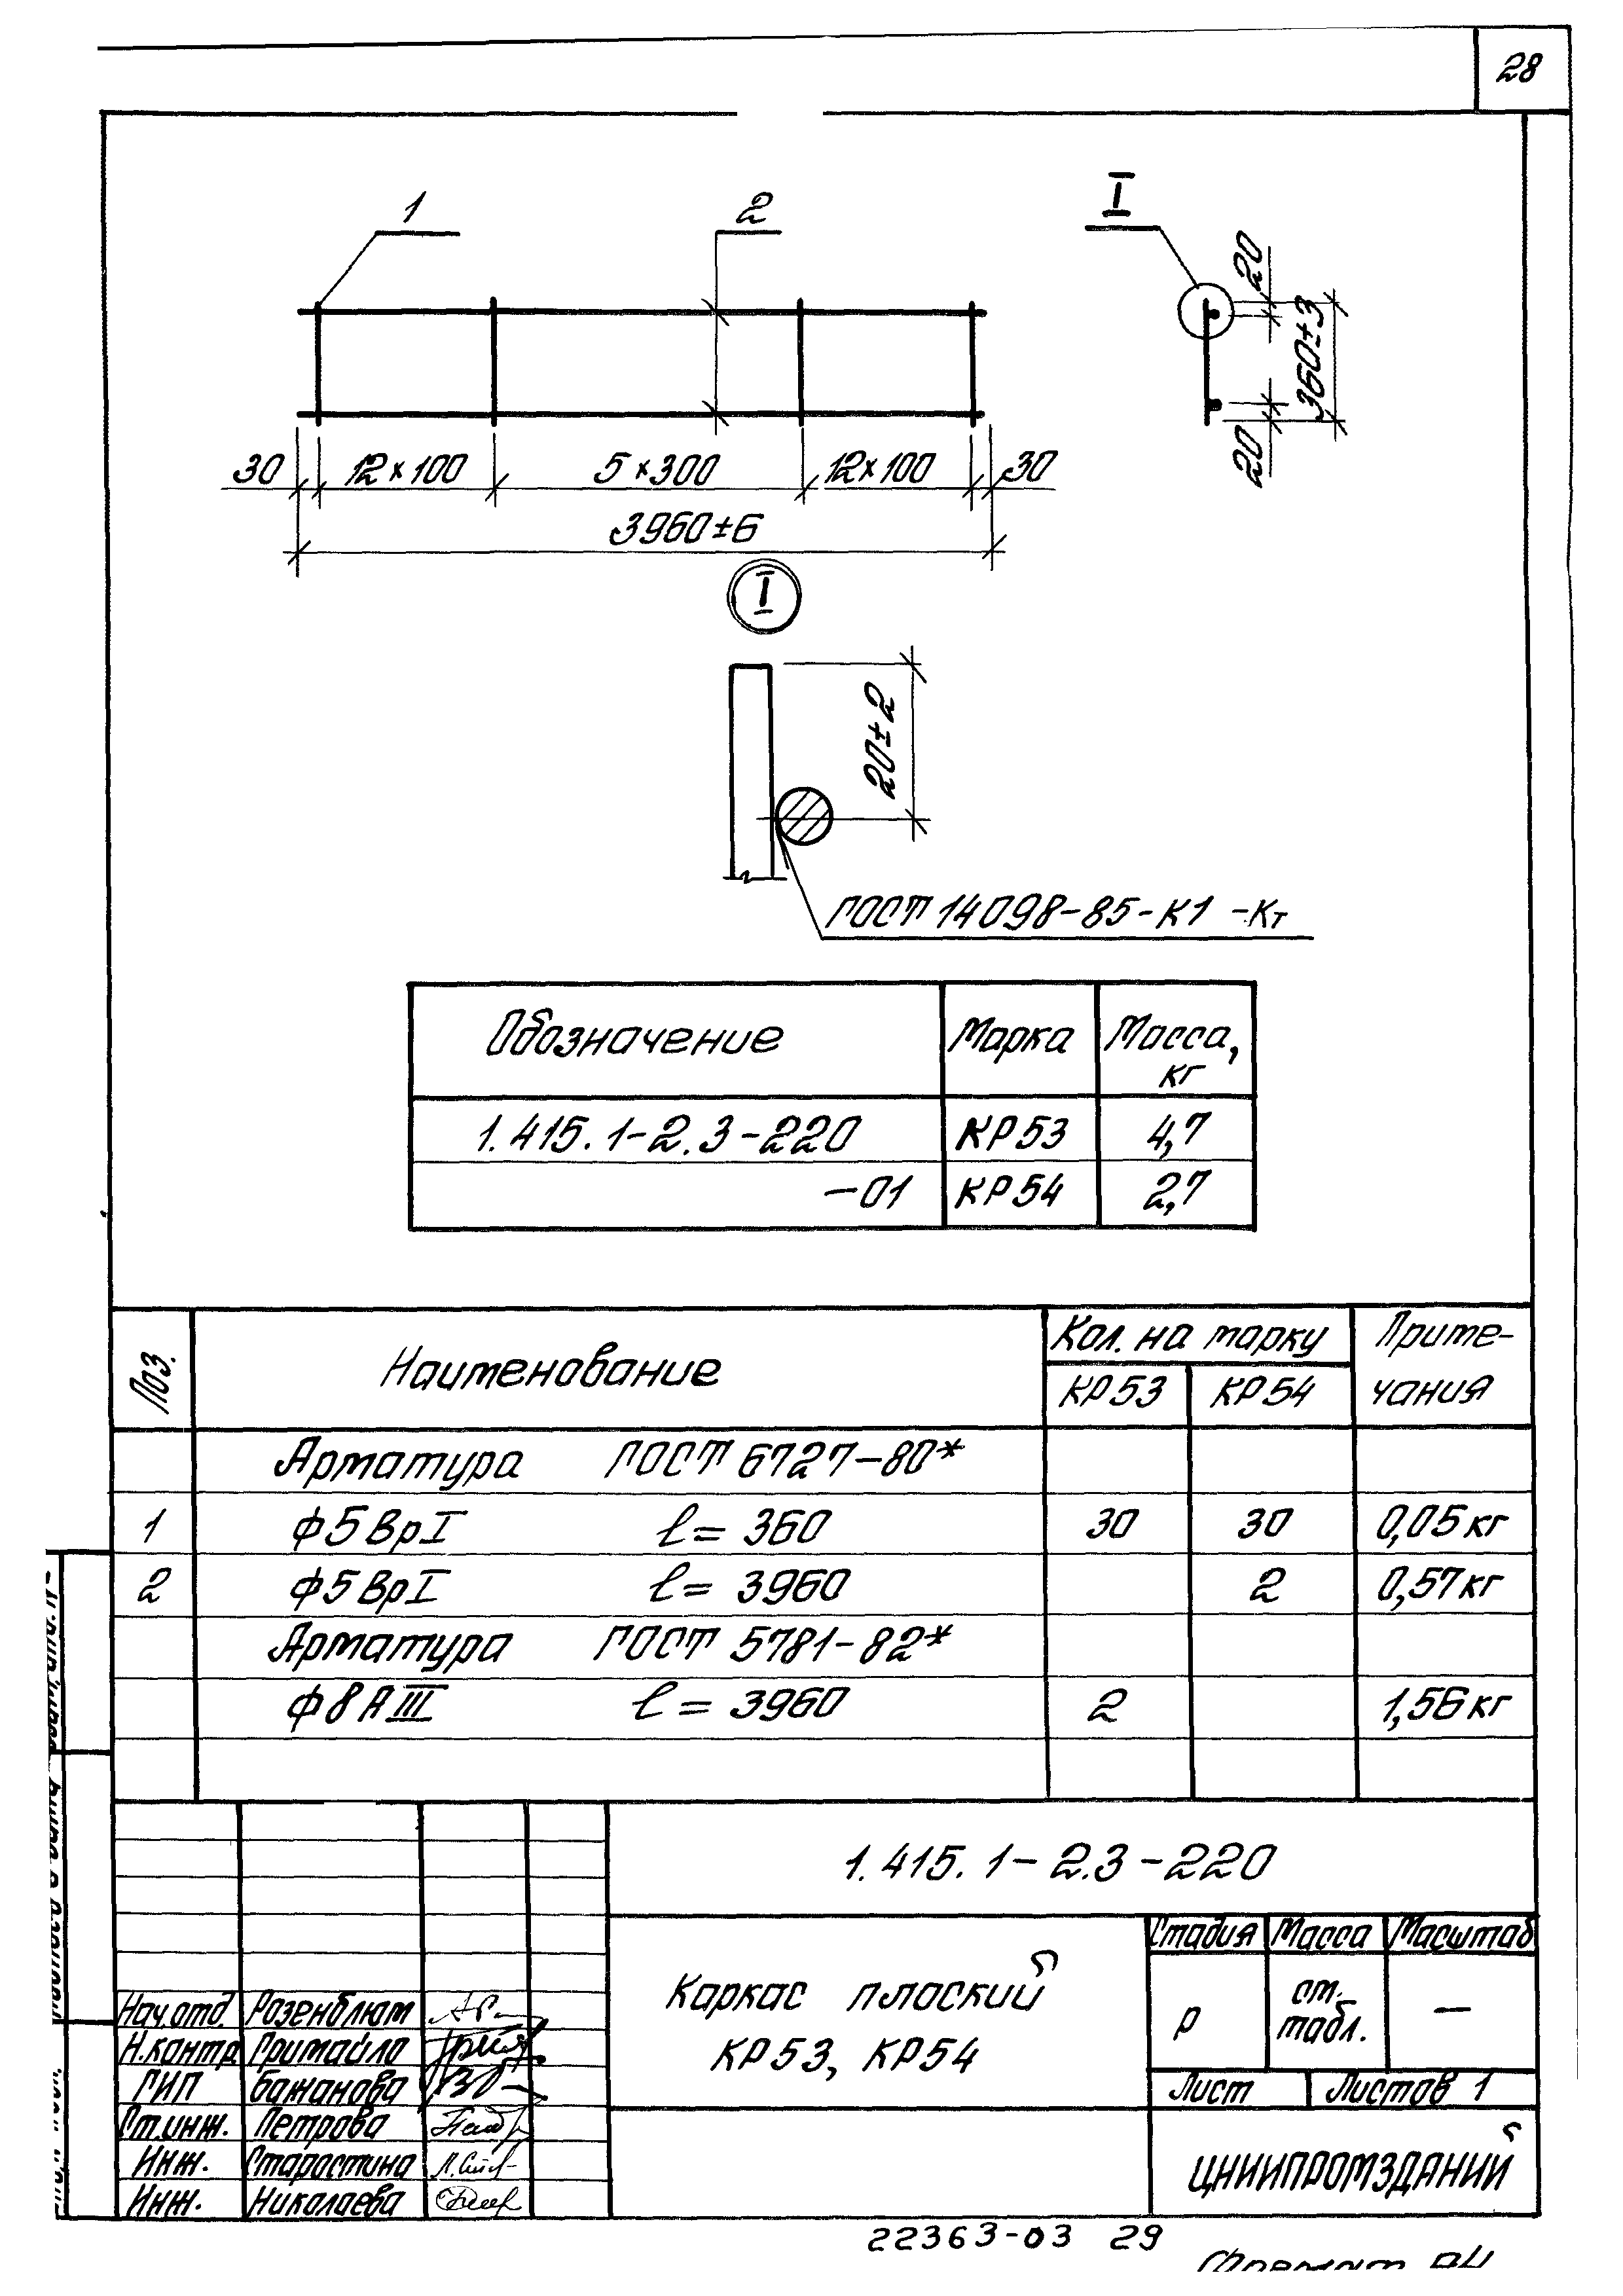 28
1
2
I
20
360±3
20
30 12×100 5×300 12×100 30
3960±6
I
20±2
ГОСТ 14098-85-К1 -Кт
Обозначение Марка Масса, кг
1.415.1-2.3-220 КР53 4,7
-01 КР54 2,7
Поз. Наименование Кол. на марку Приме-чания
КР53 КР54
Арматура ГОСТ 6727-80*
1 ф5ВрI ℓ= 360 30 30 0,05кг
2 ф5ВрI ℓ= 3960 2 0,57кг
Арматура ГОСТ 5781-82*
ф8АIII ℓ= 3960 2 1,56кг
1.415.1-2.3-220
Стадия Масса Масштаб
Каркас плоский
КР53, КР54
р ст. табл. —
Лист Листов 1
ЦНИИПРОМЗДАНИЙ
Нач.отд. Розенблюм
Н.контр. Гримайло
ГИП Бажанова
Ст.инж. Петрова
Инж. Старостина
Инж. Николаева
22363-03 29